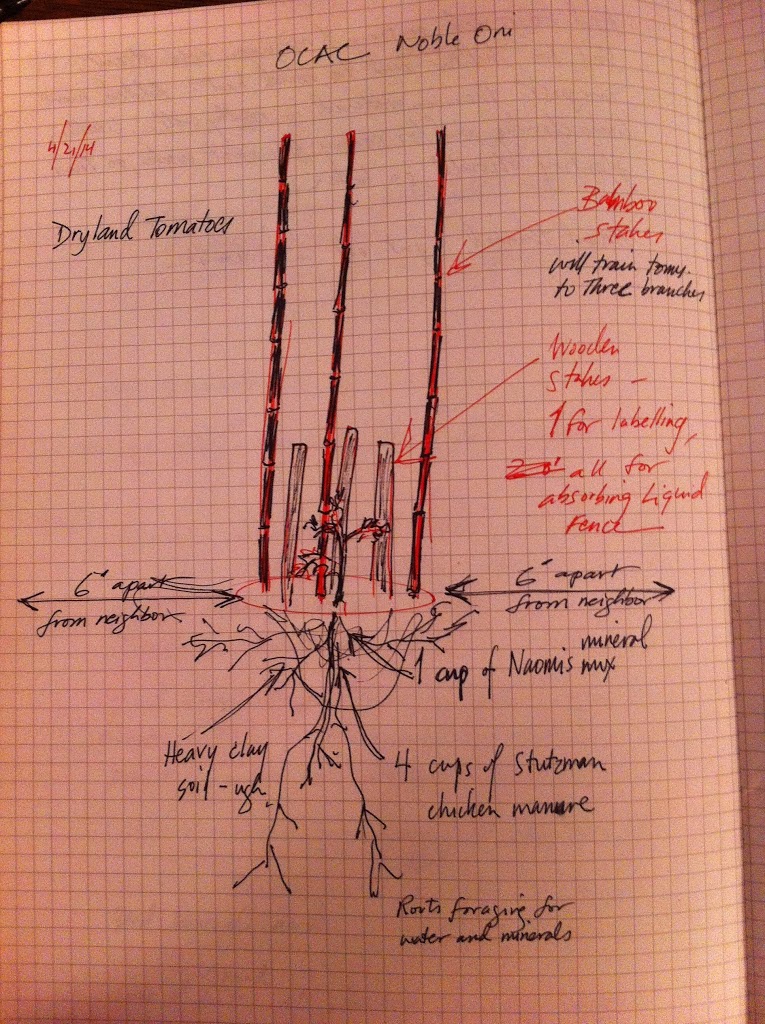 OCAC Noble Oni
4/21/14
Dryland Tomatoes
Bamboo
stakes
will train toms.
to Three branches
Wooden
stakes –
1 for labelling,
all for
absorbing Liquid
Fence
6" apart
from neighbor
6" apart
from neighbor
1 cup of Naomis mineral
mix
Heavy clay
soil - ugh
4 cups of Stutzman
chicken manure
Roots foraging for
water and minerals